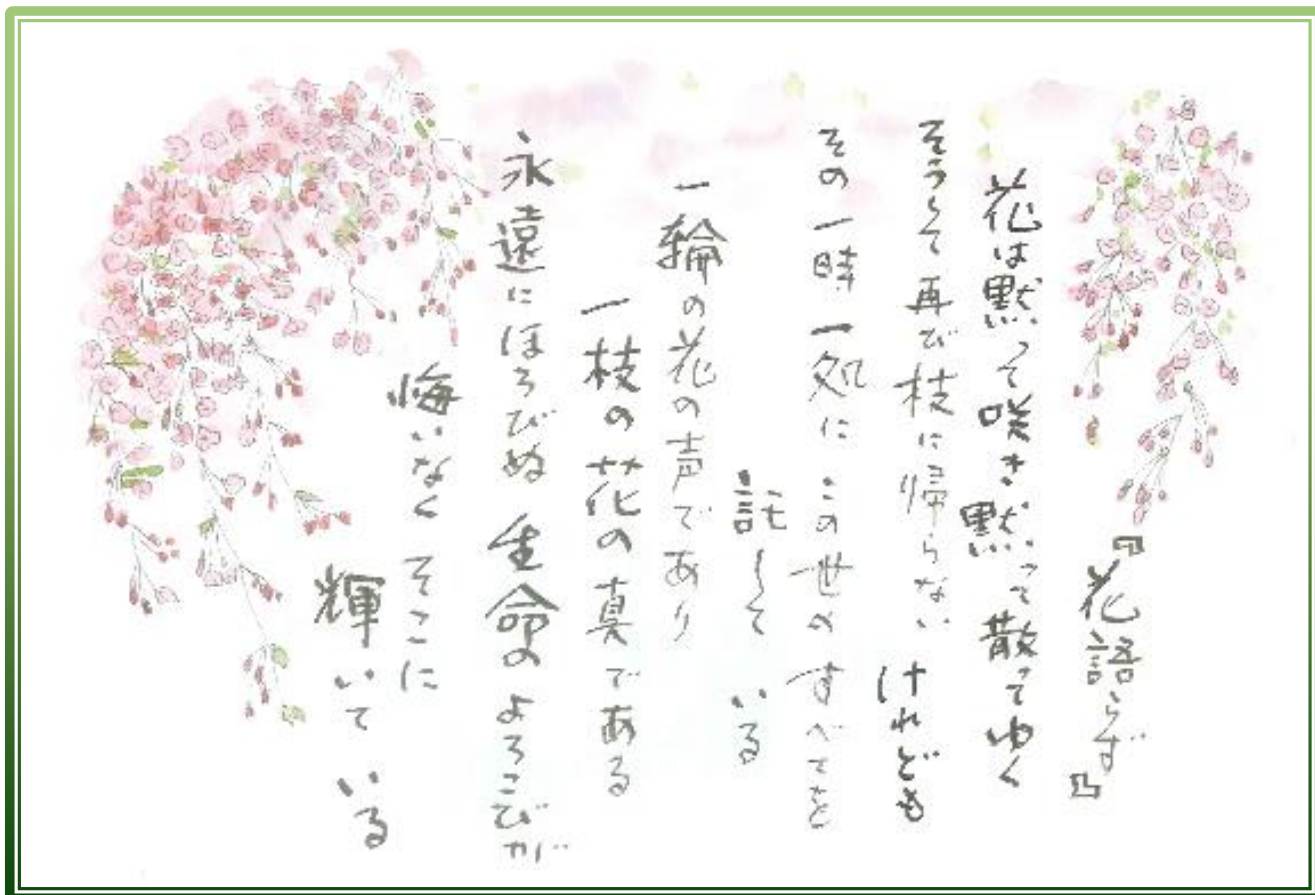 『花語らず』
花は黙って咲き黙って散ってゆく
そうして再び枝に帰らない けれども
その一時一処に この世のすべてを
託して いる
一輪の花の声であり
一枝の花の真である
永遠にほろびぬ 生命のよろこびが
悔いなく そこに
輝いて いる